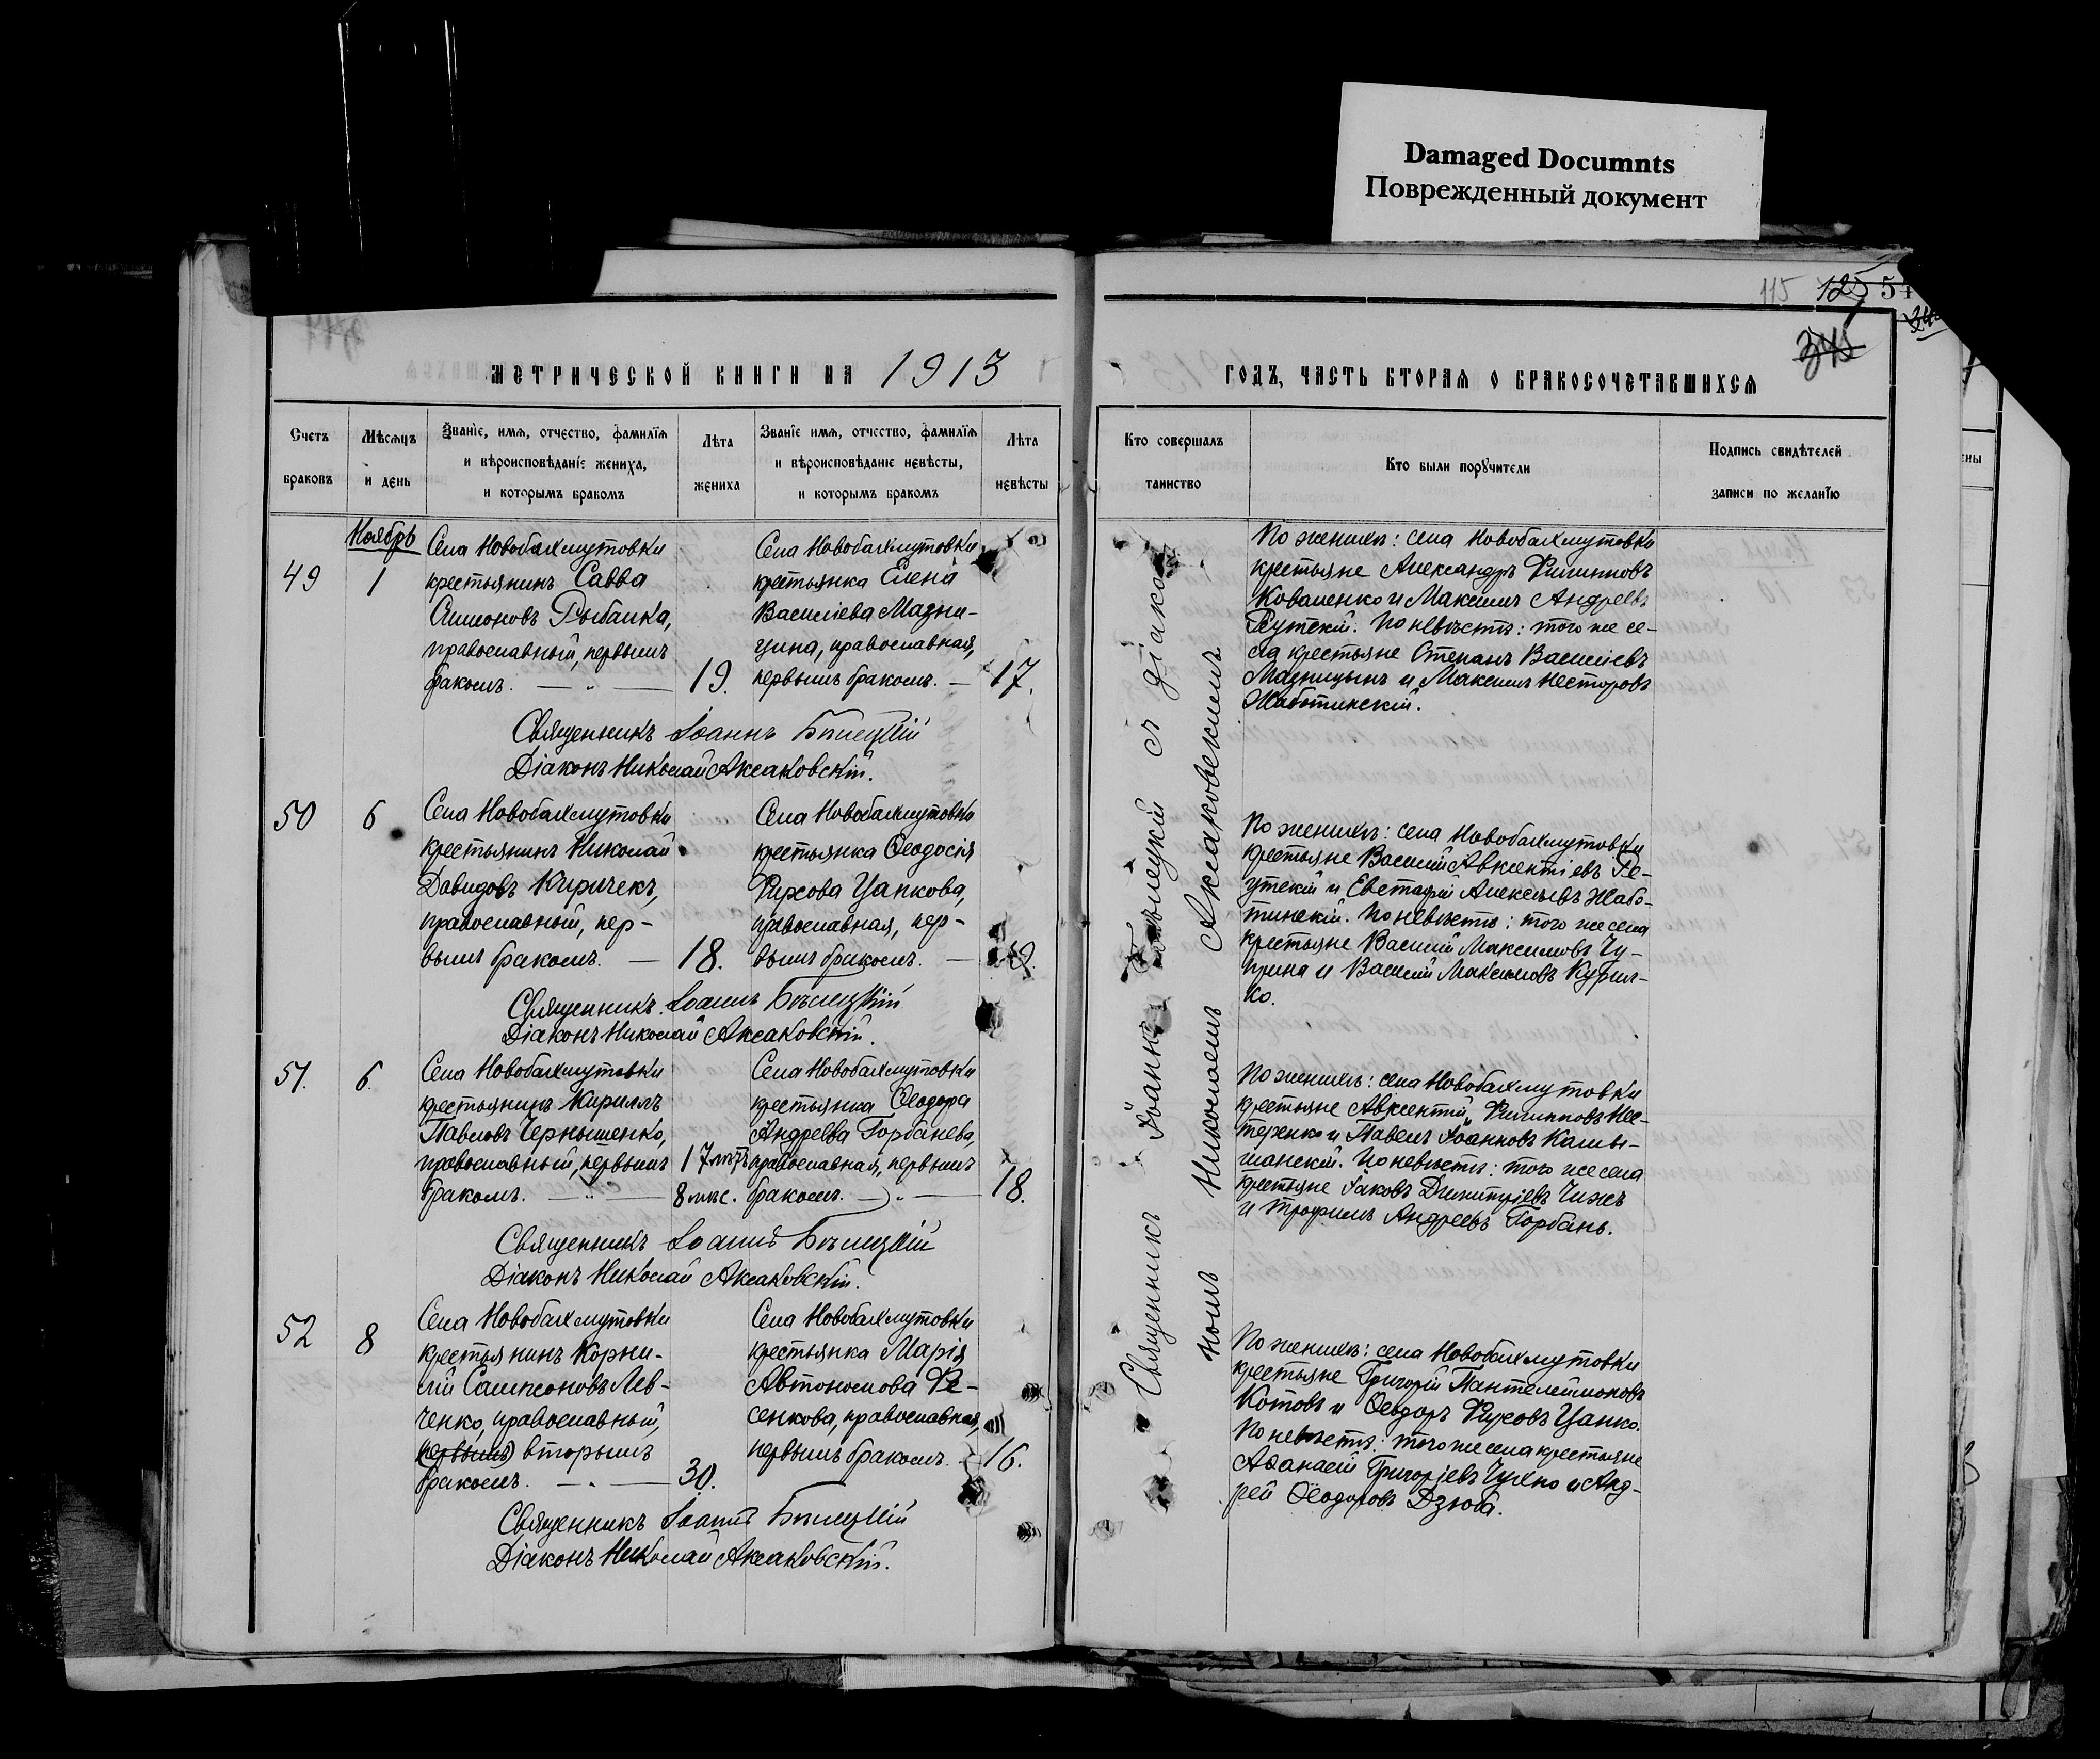 Damaged Documnts
Поврежденный документ
115 125 54
345
МЕТРИЧЕСКОЙ КНИГИ НА 1913
ГОДЪ, ЧАСТЬ ВТОРАЯ О БРАКОСОЧЕТАВШИХСЯ
Счетъ браковъ
Мѣсяцъ и день
Званіе, имя, отчество, фамилія и вѣроисповѣданіе жениха, и которымъ бракомъ
Лѣта жениха
Званіе имя, отчество, фамилія и вѣроисповѣданіе невѣсты, и которымъ бракомъ
Лѣта невѣсты
Кто совершалъ таинство
Кто были поручители
Подпись свидѣтелей записи по желанію
Ноябрь
49
1
Села Новобахмутовки
крестьянинъ Савва
Симоновъ Рыбалка,
православный, первымъ
бракомъ.
19.
Села Новобахмутовки
крестьянка Елена
Василіева Мазни-
цина, православная,
первымъ бракомъ.
17.
Священникъ Іоаннъ Бѣлецкій
Діаконъ Николай Аксаковскій.
50
6
Села Новобахмутовки
крестьянинъ Николай
Давидовъ Киричекъ,
православный, пер-
вымъ бракомъ.
18.
Села Новобахмутовки
крестьянка Ѳеодосія
Фирсова Цапкова,
православная, пер-
вымъ бракомъ.
Священникъ Іоаннъ Бѣлецкій
Діаконъ Николай Аксаковскій.
51.
6.
Села Новобахмутовки
крестьянинъ Кириллъ
Павловъ Чернышенко,
православный, первымъ
бракомъ.
17 лѣтъ
8 мѣс.
Села Новобахмутовки
крестьянка Ѳеодора
Андреева Горбанева,
православная, первымъ
бракомъ.
18.
Священникъ Іоаннъ Бѣлецкій
Діаконъ Николай Аксаковскій.
52
8
Села Новобахмутовки
крестьянинъ Корни-
лій Сампсоновъ Лев-
ченко, православный,
первымъ вторымъ
бракомъ.
30.
Села Новобахмутовки
крестьянка Марія
Автономова Фе-
сенкова, православная,
первымъ бракомъ.
16.
Священникъ Іоаннъ Бѣлецкій
Діаконъ Николай Аксаковскій.
Священникъ Іоаннъ Бѣлецкій съ діако-
номъ Николаемъ Аксаковскимъ
По женихѣ: села Новобахмутовки
крестьяне Александръ Филипповъ
Коваленко и Максимъ Андреевъ
Реутскій. По невѣстѣ: того же се-
ла крестьяне Степанъ Василіевъ
Мазницынъ и Максимъ Несторовъ
Жаботинскій.
По женихѣ: села Новобахмутовки
крестьяне Василій Авксентіевъ Ре-
утскій и Евстафій Алексѣевъ Жабо-
тинскій. По невѣстѣ: того же села
крестьяне Василій Максимовъ Чу-
прина и Василій Максимовъ Курил-
ко.
По женихѣ: села Новобахмутовки
крестьяне Авксентій Филипповъ Нес-
теренко и Павелъ Іоанновъ Камы-
шанскій. По невѣстѣ: того же села
крестьяне Іаковъ Димитріевъ Чижъ
и Трофимъ Андреевъ Горбань.
По женихѣ: села Новобахмутовки
крестьяне Григорій Пантелеймоновъ
Котовъ и Ѳеодоръ Фирсовъ Цапко.
По невѣстѣ: того же села крестьяне
Аѳанасій Григорьевъ Чухно и Анд-
рей Ѳеодоровъ Дзюба.